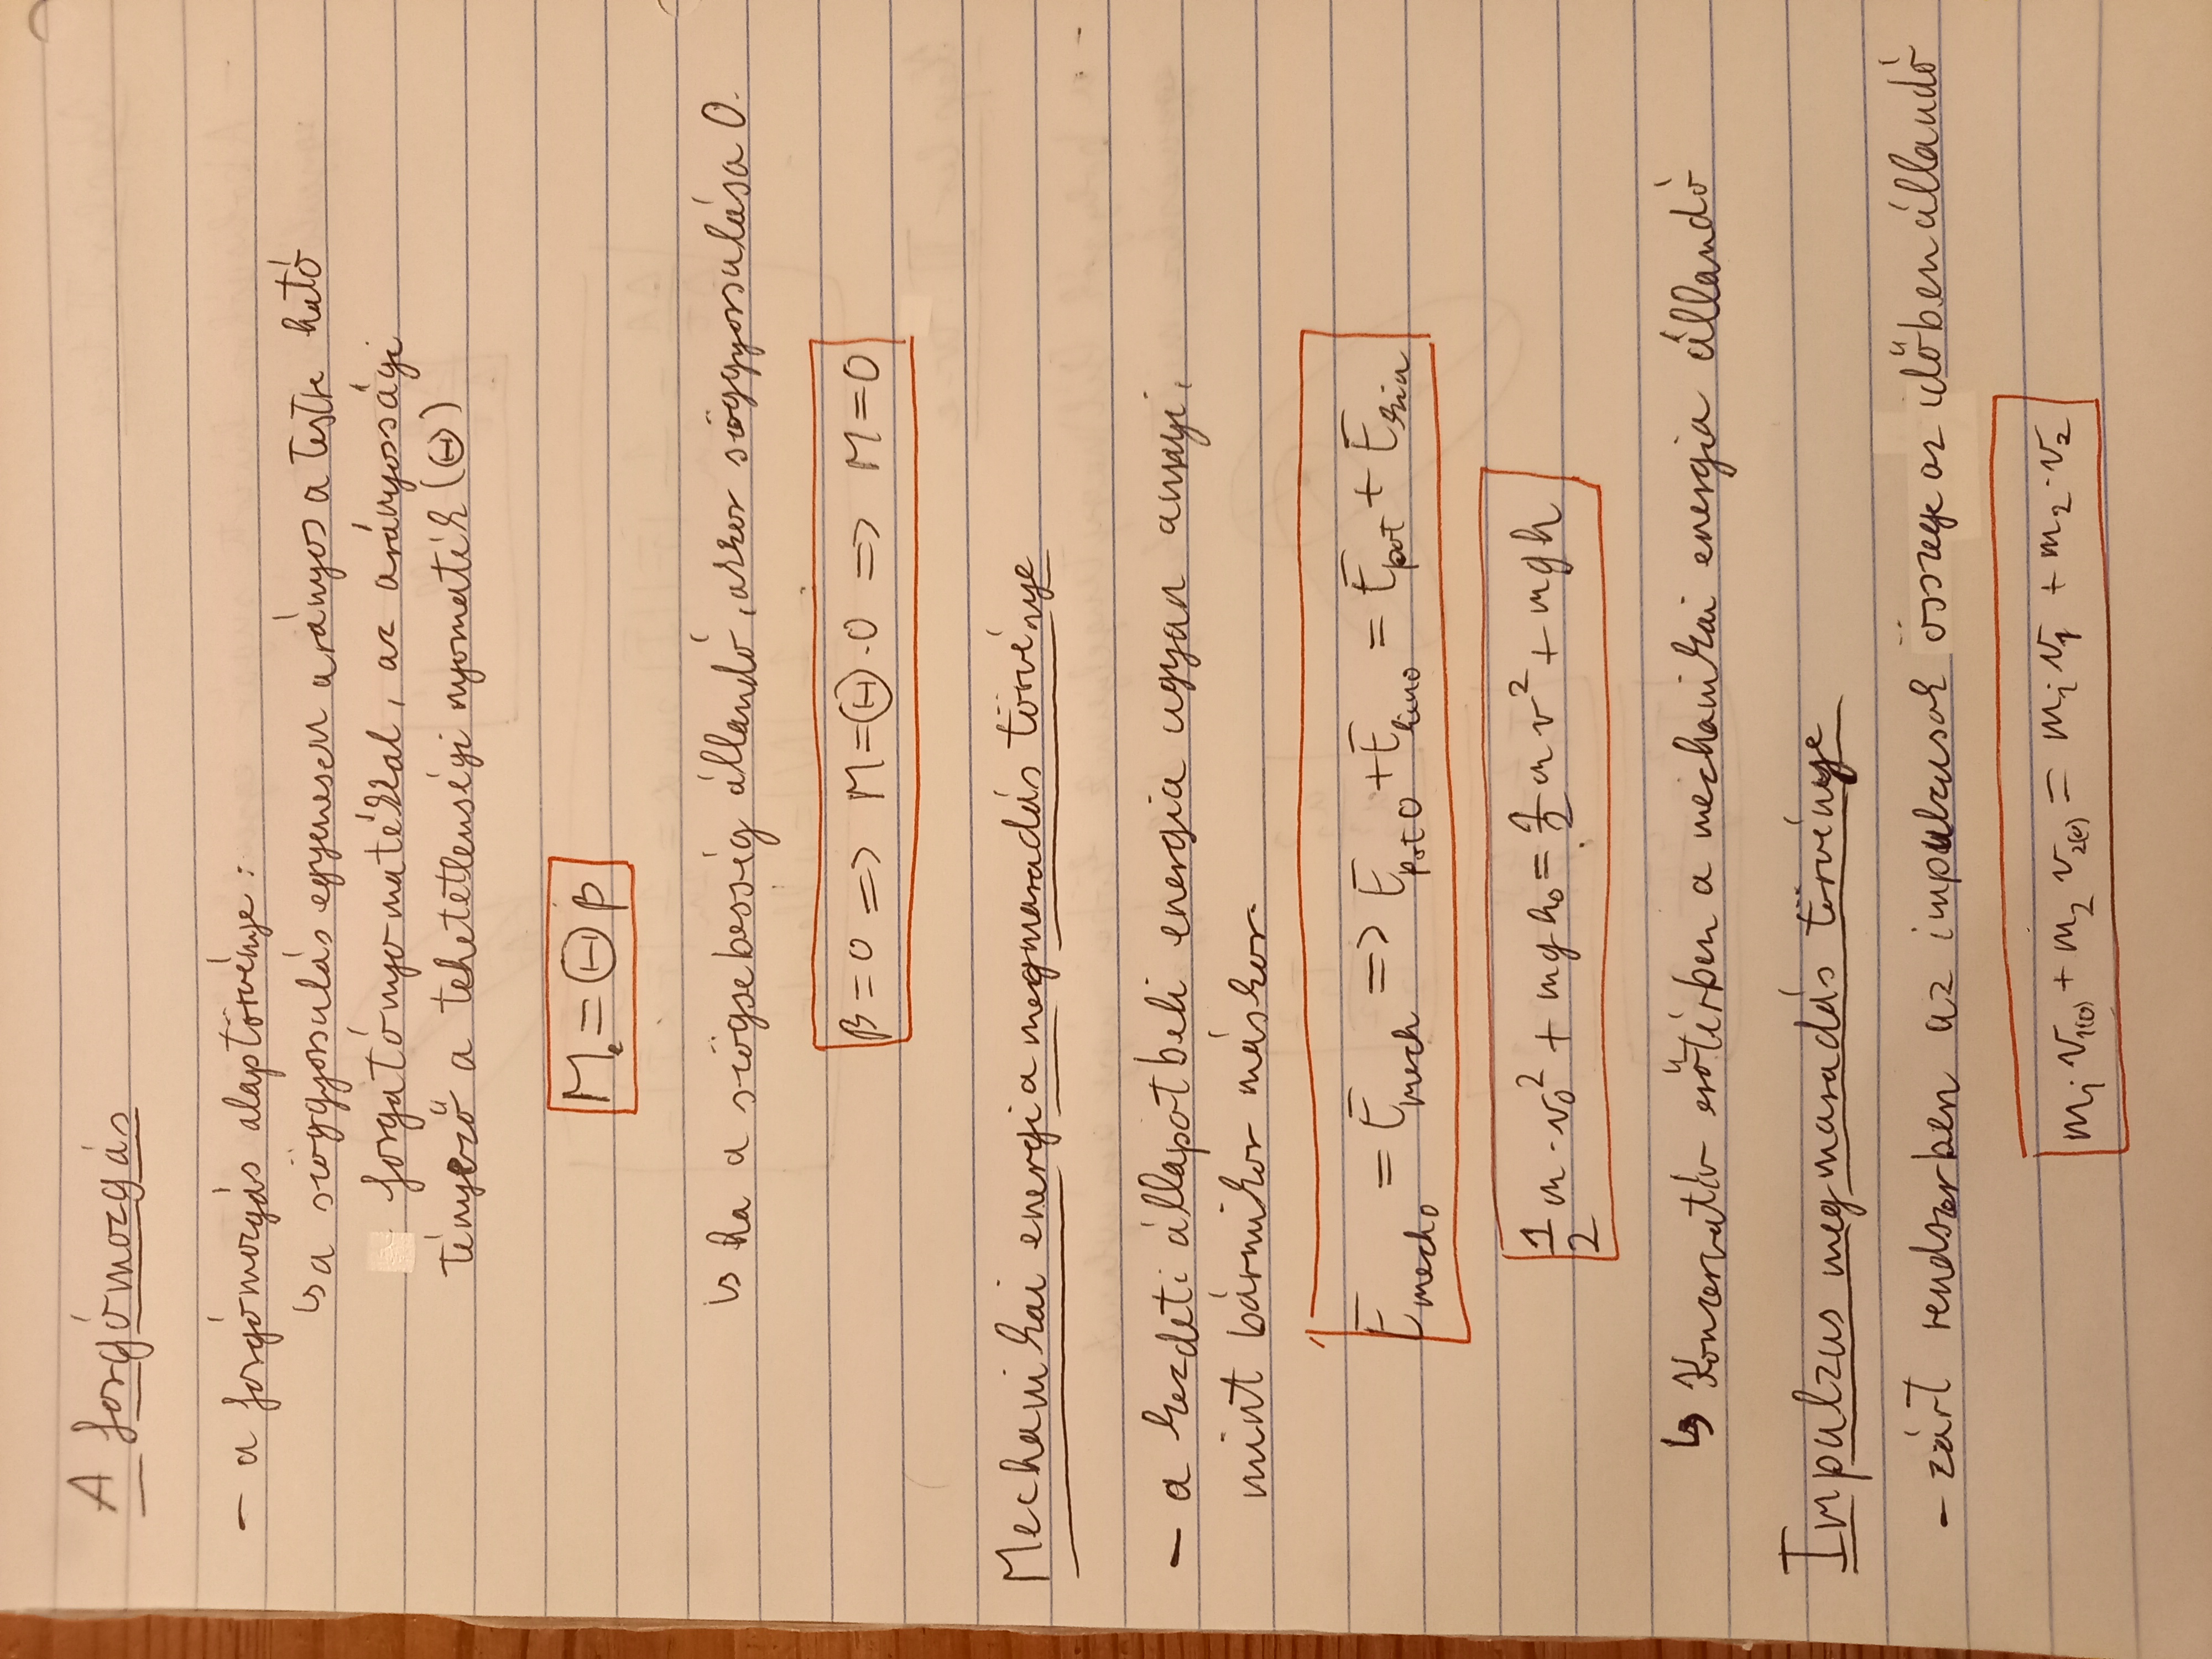 A forgómozgás
- a forgómozgás alaptörvénye:
↳ a szöggyorsulás egyenesen arányos a testre ható
forgatónyomatékkal, az arányossági
tényező a tehetetlenségi nyomaték (Θ)
Mₑ = Θ β
↳ ha a szögsebesség állandó, akkor szöggyorsulása 0.
β = 0 => M = Θ · 0 => M = 0
Mechanikai energia megmaradás törvénye
- a kezdeti állapotbeli energia ugyan annyi,
mint bármikor máskor.
E_mech0 = E_mech => E_pot0 + E_kin0 = E_pot + E_kin
1/2 m · v₀² + mgh₀ = 1/2 m v² + mgh
↳ Konzervatív erőtérben a mechanikai energia állandó
Impulzus megmaradás törvénye
- zárt rendszerben az impulzusok összege az időben állandó
m₁ v₁₍₀₎ + m₂ v₂₍₀₎ = m₁ v₁ + m₂ · v₂